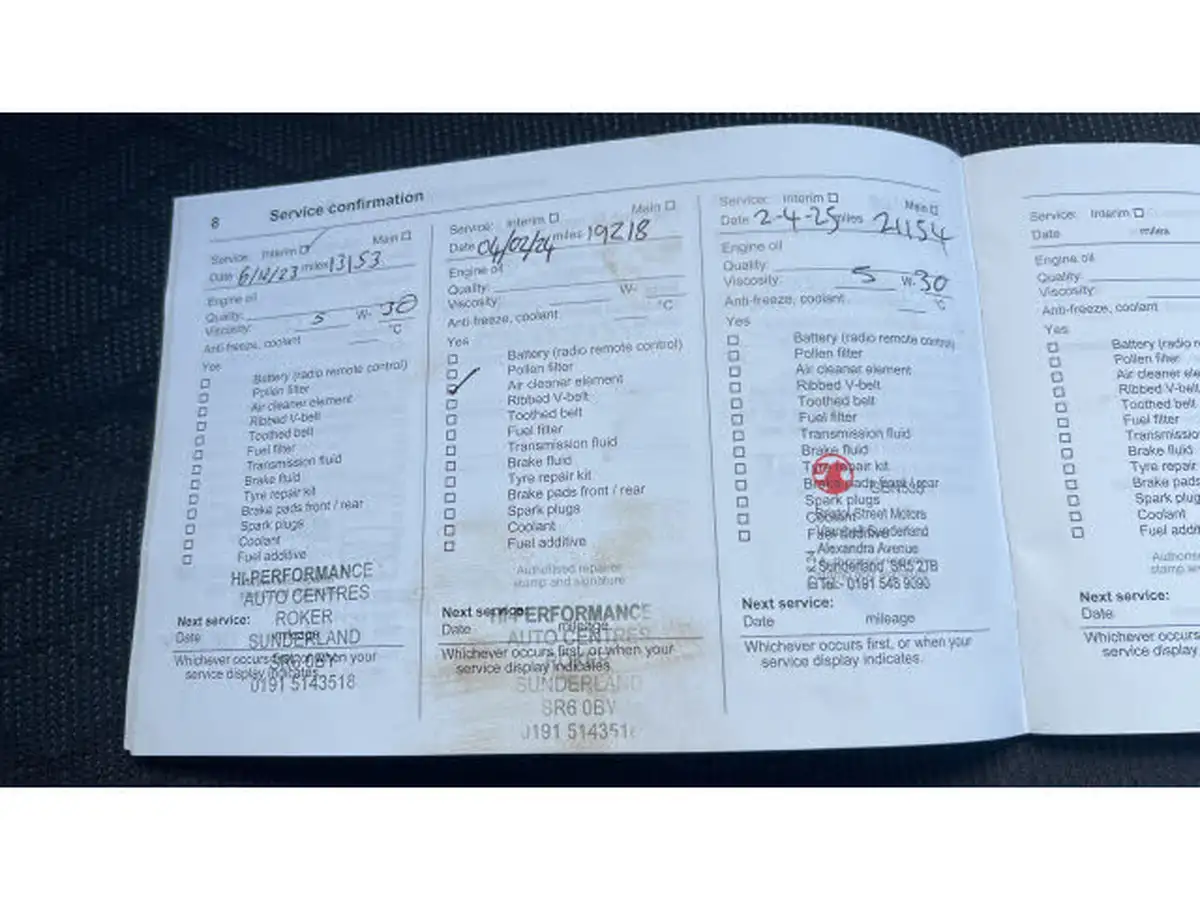 8 Service confirmation
Service: Interim Main
Date 6/12/23 miles 13153
Engine oil
Quality:
Viscosity: 5 W- 30
Anti-freeze, coolant °C
Yes
Battery (radio remote control)
Pollen filter
Air cleaner element
Ribbed V-belt
Toothed belt
Fuel filter
Transmission fluid
Brake fluid
Tyre repair kit
Brake pads front / rear
Spark plugs
Coolant
Fuel additive
HI-PERFORMANCE
AUTO CENTRES
ROKER
SUNDERLAND
SR6 0BY
0191 5143518
Next service:
Date mileage
Whichever occurs first, or when your
service display indicates.
Service: Interim Main
Date 04/02/24 miles 19218
Engine oil
Quality:
Viscosity: W-
Anti-freeze, coolant °C
Yes
Battery (radio remote control)
Pollen filter
Air cleaner element
Ribbed V-belt
Toothed belt
Fuel filter
Transmission fluid
Brake fluid
Tyre repair kit
Brake pads front / rear
Spark plugs
Coolant
Fuel additive
Authorised repairer
stamp and signature
HI-PERFORMANCE
AUTO CENTRES
SUNDERLAND
SR6 0BY
Next service:
Date mileage
Whichever occurs first, or when your
service display indicates.
Service: Interim Main
Date 2-4-25 miles 21154
Engine oil
Quality:
Viscosity: 5 W- 30
Anti-freeze, coolant °C
Yes
Battery (radio remote control)
Pollen filter
Air cleaner element
Ribbed V-belt
Toothed belt
Fuel filter
Transmission fluid
Brake fluid
Tyre repair kit
Brake pads front / rear
Spark plugs
Coolant
Fuel additive
Bristol Street Motors
Vauxhall Sunderland
Alexandra Avenue
Sunderland, SR5 2TB
Tel: 0191 548 9393
Next service:
Date mileage
Whichever occurs first, or when your
service display indicates.
Service: Interim
Date miles
Engine oil
Quality:
Viscosity:
Anti-freeze, coolant
Yes
Battery (radio
Pollen filter
Air cleaner
Ribbed V-belt
Toothed belt
Fuel filter
Transmission
Brake fluid
Tyre repair
Brake pads
Spark
Coolant
Fuel
stamp
Next service:
Date
Whichever occurs
service display